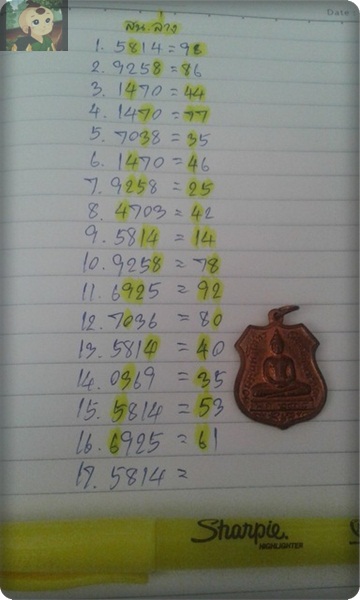 Date
สน.ล่าง
1. 5814 = 98
2. 9258 = 86
3. 1470 = 44
4. 1470 = 77
5. 7038 = 35
6. 1470 = 46
7. 9258 = 25
8. 4703 = 42
9. 5814 = 14
10. 9258 = 78
11. 6925 = 92
12. 7036 = 80
13. 5814 = 40
14. 0369 = 35
15. 5814 = 53
16. 6925 = 61
17. 5814 =
Sharpie.
HIGHLIGHTER